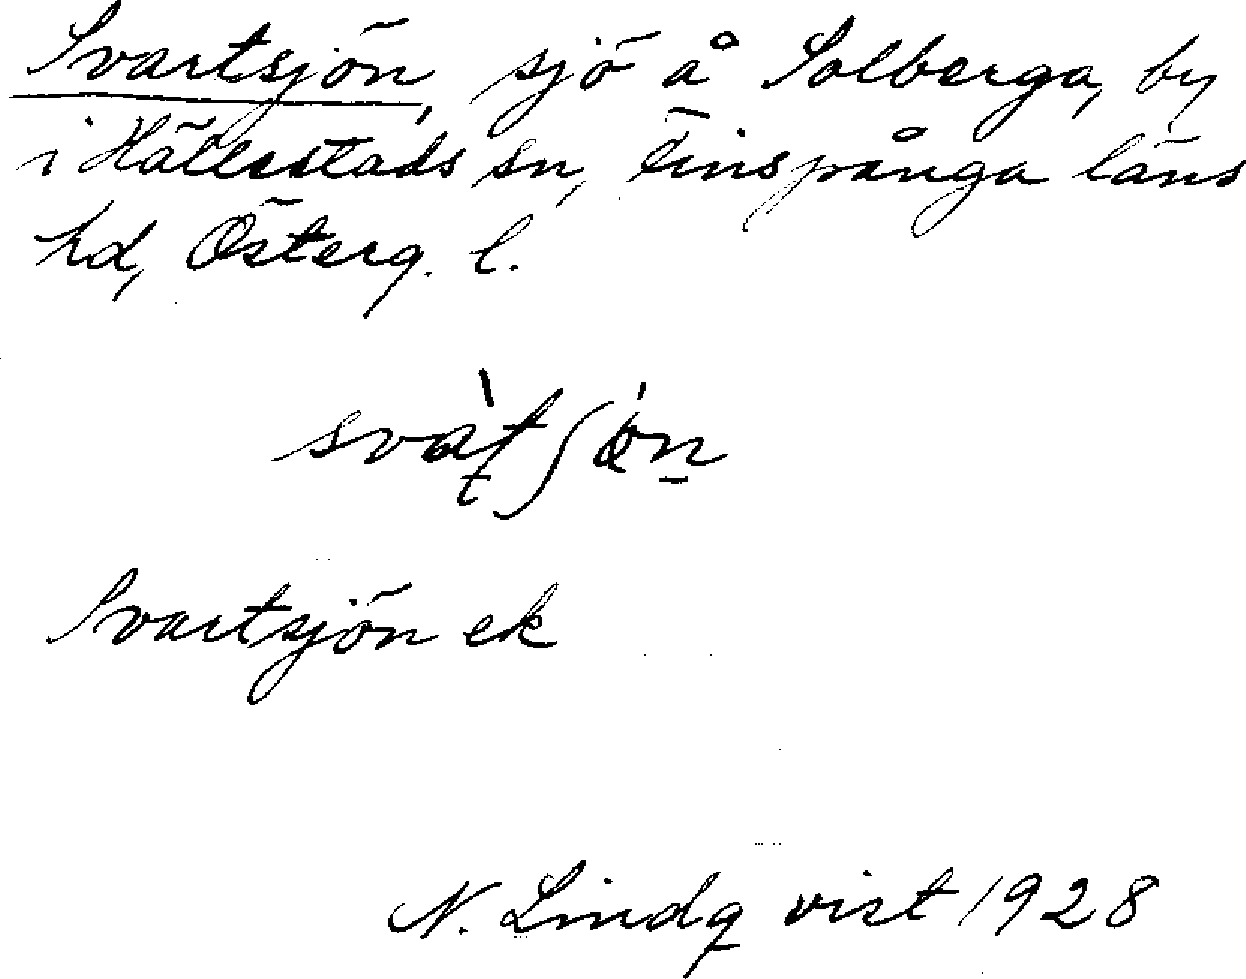 Svartsjön, sjö å Solberga, by
i Hällestads sn, Finspånga läns
hd, Österg. l.
Svartsjön ek
N. Lindqvist 1928